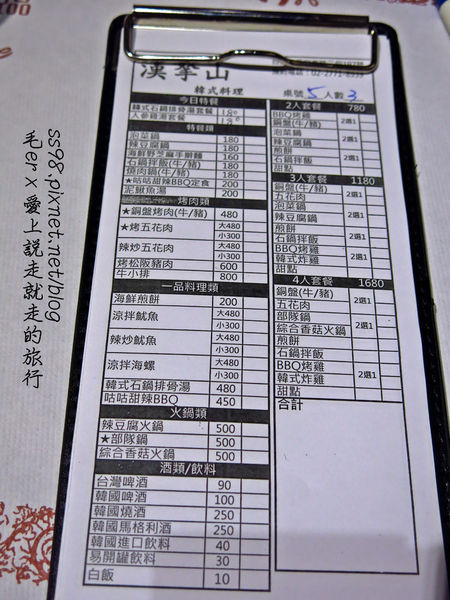 漢拏山
韓式料理
桌號 5 人數 3
今日特餐
韓式石鍋排骨湯套餐 180
人參雞湯套餐 180
特餐類
泡菜鍋 180
辣豆腐鍋 180
海鮮野芝麻手擀麵 160
石鍋拌飯(牛/豬) 160
燒肉鍋(牛/豬) 180
★咕咕甜辣BBQ定食 200
泥鰍魚湯 200
烤肉類
★銅盤烤肉(牛/豬) 480
★烤五花肉 大480
小300
辣炒五花肉 大480
小300
烤松阪豬肉 600
牛小排 800
一品料理類
海鮮煎餅 200
涼拌魷魚 大480
小300
辣炒魷魚 大480
小300
涼拌海螺 大480
小300
韓式石鍋排骨湯 480
咕咕甜辣BBQ 450
火鍋類
辣豆腐火鍋 500
★部隊鍋 500
綜合香菇火鍋 500
酒類/飲料
台灣啤酒 90
韓國啤酒 100
韓國燒酒 250
韓國馬格利酒 250
韓國進口飲料 40
易開罐飲料 30
白飯 10
2人套餐 780
BBQ烤雞
銅盤(牛/豬) 2選1
泡菜鍋
辣豆腐鍋 2選1
煎餅
石鍋拌飯 2選1
甜點
3人套餐 1180
銅盤(牛/豬)
五花肉 2選1
泡菜鍋
辣豆腐鍋 2選1
煎餅
石鍋拌飯 2選1
BBQ烤雞
韓式炸雞 2選1
甜點
4人套餐 1680
銅盤(牛/豬)
五花肉 2選1
部隊鍋
綜合香菇火鍋 2選1
煎餅
石鍋拌飯
BBQ烤雞
韓式炸雞 2選1
甜點
合計
ss98.pixnet.net/blog
毛er x 愛上説走就走的旅行